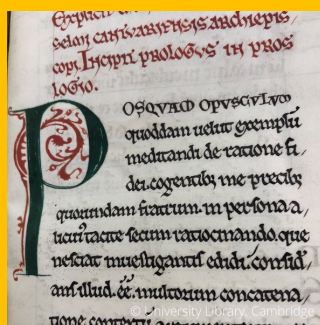 Explicit
selmi cantuariensis archiepis,
copi. Incipit prologus in pros
logio.
POSQUAM OPUSCULUM
quoddam uelut exemplū
meditandi de ratione fi,
dei. cogentibꝫ me precibꝫ
quorundam fratrum. in persona a,
licui᷒ tacite secum ratiocinando. que
nesciat inuestigantis edidi. consid̄,
ans illud. ee͞. multorum concatena,
tione
© University Library, Cambridge